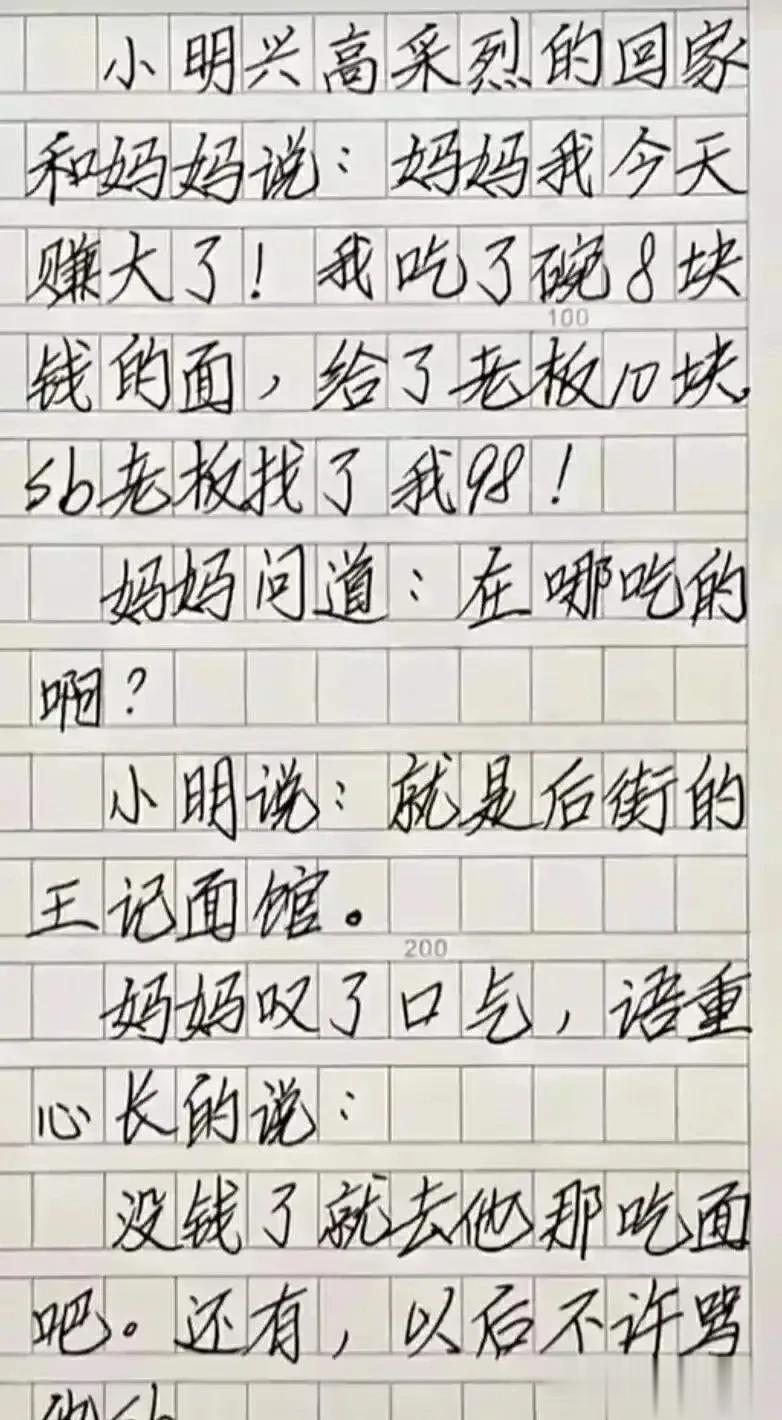 小明兴高采烈的回家
和妈妈说：妈妈我今天
赚大了！我吃了碗8块
100
钱的面，给了老板10块
sb老板找了我98！
妈妈问道：在哪吃的
啊？
小明说：就是后街的
王记面馆。
200
妈妈叹了口气，语重
心长的说：
没钱了就去他那吃面
吧。还有，以后不许骂
他sb